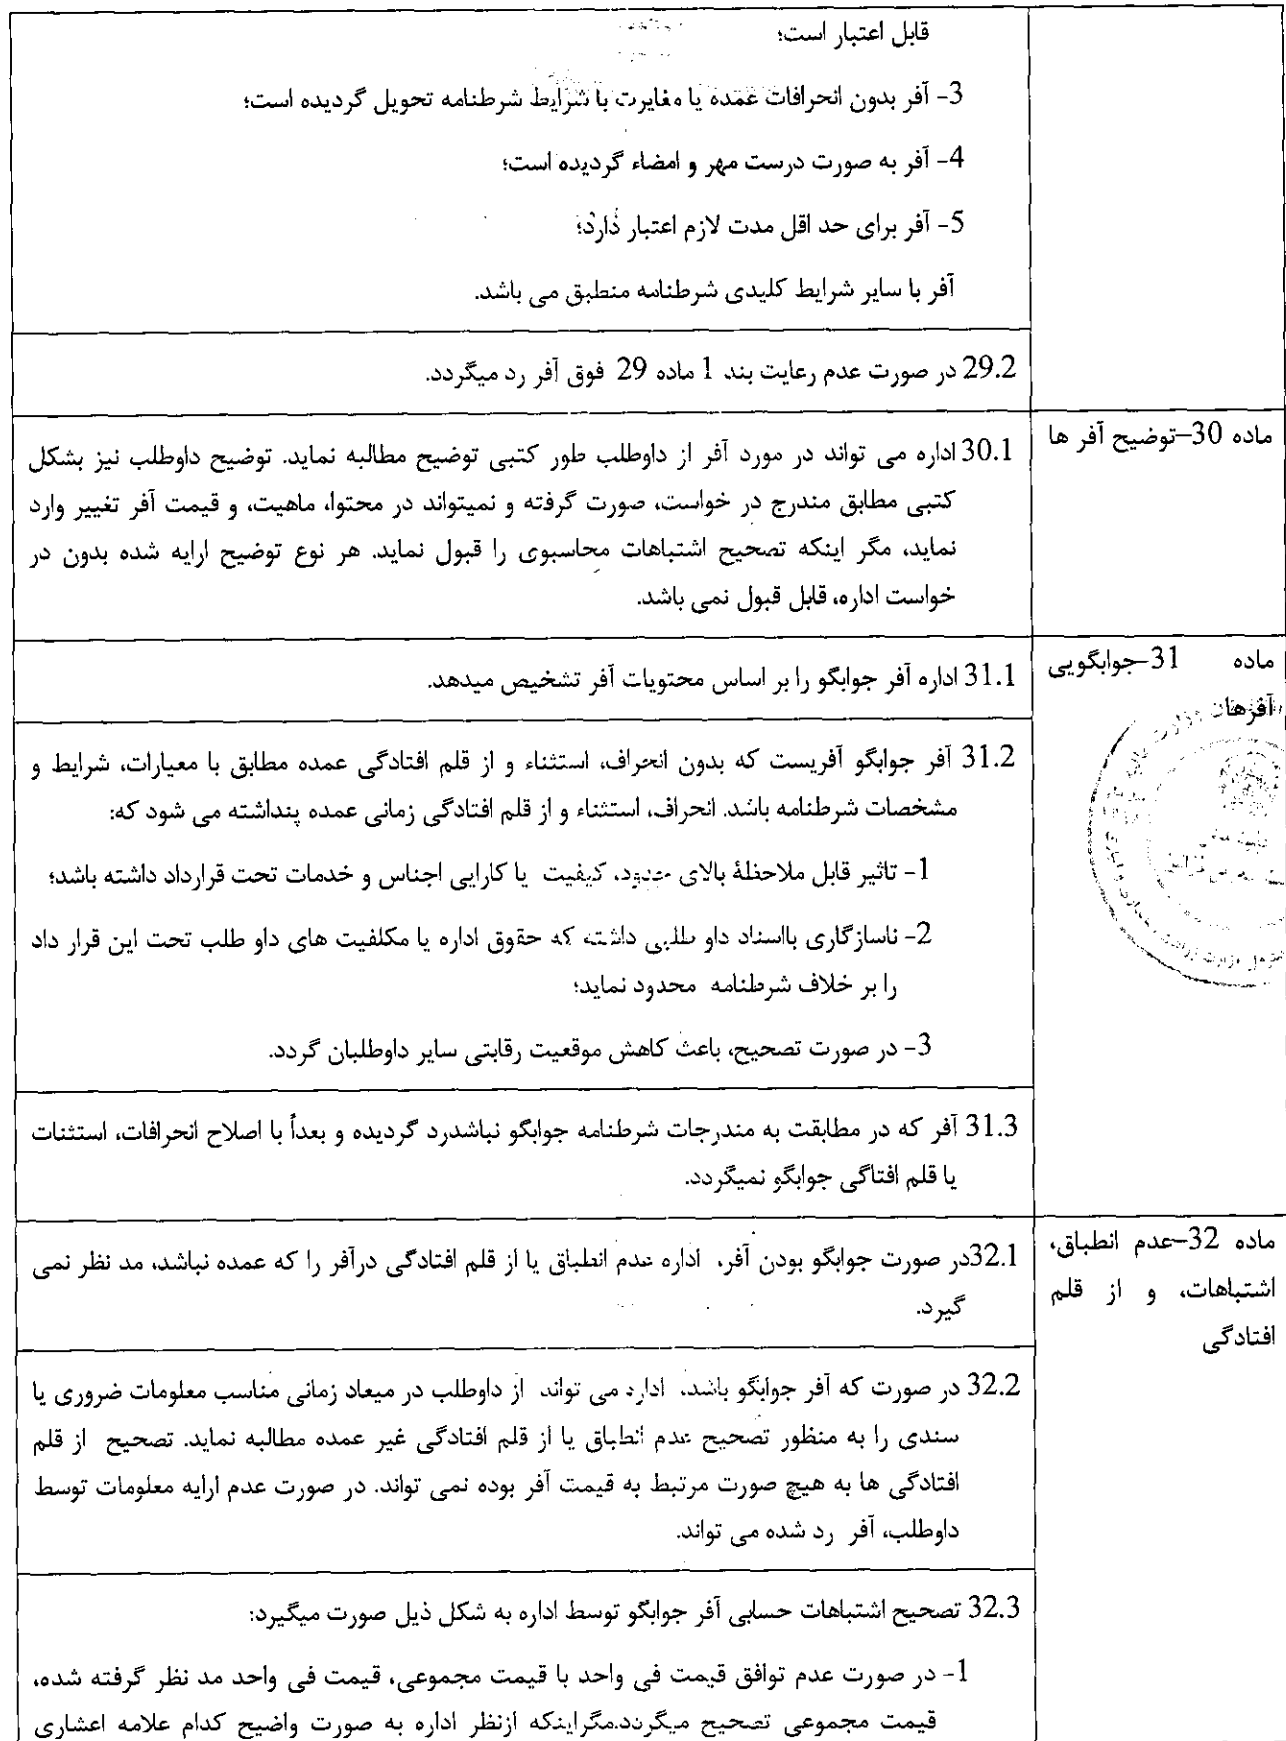 قابل اعتبار است؛
3- آفر بدون انحرافات عمده یا مغایرت با شرایط شرطنامه تحویل گردیده است؛
4- آفر به صورت درست مهر و امضاء گردیده است؛
5- آفر برای حد اقل مدت لازم اعتبار دارد؛
آفر با سایر شرایط کلیدی شرطنامه منطبق می باشد.
29.2 در صورت عدم رعایت بند 1 ماده 29 فوق آفر رد میگردد.
ماده 30–توضیح آفر ها
30.1 اداره می تواند در مورد آفر از داوطلب طور کتبی توضیح مطالبه نماید. توضیح داوطلب نیز بشکل
کتبی مطابق مندرج در خواست، صورت گرفته و نمیتواند در محتوا، ماهیت، و قیمت آفر تغییر وارد
نماید، مگر اینکه تصحیح اشتباهات محاسبوی را قبول نماید. هر نوع توضیح ارایه شده بدون در
خواست اداره، قابل قبول نمی باشد.
ماده 31–جوابگویی
آفرها
31.1 اداره آفر جوابگو را بر اساس محتویات آفر تشخیص میدهد.
31.2 آفر جوابگو آفریست که بدون انحراف، استثناء و از قلم افتادگی عمده مطابق با معیارات، شرایط و
مشخصات شرطنامه باشد. انحراف، استثناء و از قلم افتادگی زمانی عمده پنداشته می شود که:
1- تاثیر قابل ملاحظهٔ بالای حدود، کیفیت یا کارایی اجناس و خدمات تحت قرارداد داشته باشد؛
2- ناسازگاری بااسناد داو طلبی داشته که حقوق اداره یا مکلفیت های داو طلب تحت این قرار داد
را بر خلاف شرطنامه محدود نماید؛
3- در صورت تصحیح، باعث کاهش موقعیت رقابتی سایر داوطلبان گردد.
31.3 آفر که در مطابقت به مندرجات شرطنامه جوابگو نباشدرد گردیده و بعداً با اصلاح انحرافات، استثنات
یا قلم افتاگی جوابگو نمیگردد.
ماده 32–عدم انطباق،
اشتباهات، و از قلم
افتادگی
32.1در صورت جوابگو بودن آفر، اداره عدم انطباق یا از قلم افتادگی درآفر را که عمده نباشد، مد نظر نمی
گیرد.
32.2 در صورت که آفر جوابگو باشد، اداره می تواند از داوطلب در میعاد زمانی مناسب معلومات ضروری یا
سندی را به منظور تصحیح عدم انطباق یا از قلم افتادگی غیر عمده مطالبه نماید. تصحیح از قلم
افتادگی ها به هیچ صورت مرتبط به قیمت آفر بوده نمی تواند. در صورت عدم ارایه معلومات توسط
داوطلب، آفر رد شده می تواند.
32.3 تصحیح اشتباهات حسابی آفر جوابگو توسط اداره به شکل ذیل صورت میگیرد:
1- در صورت عدم توافق قیمت فی واحد با قیمت مجموعی، قیمت فی واحد مد نظر گرفته شده،
قیمت مجموعی تصحیح میگردد.مگراینکه ازنظر اداره به صورت واضیح کدام علامه اعشاری